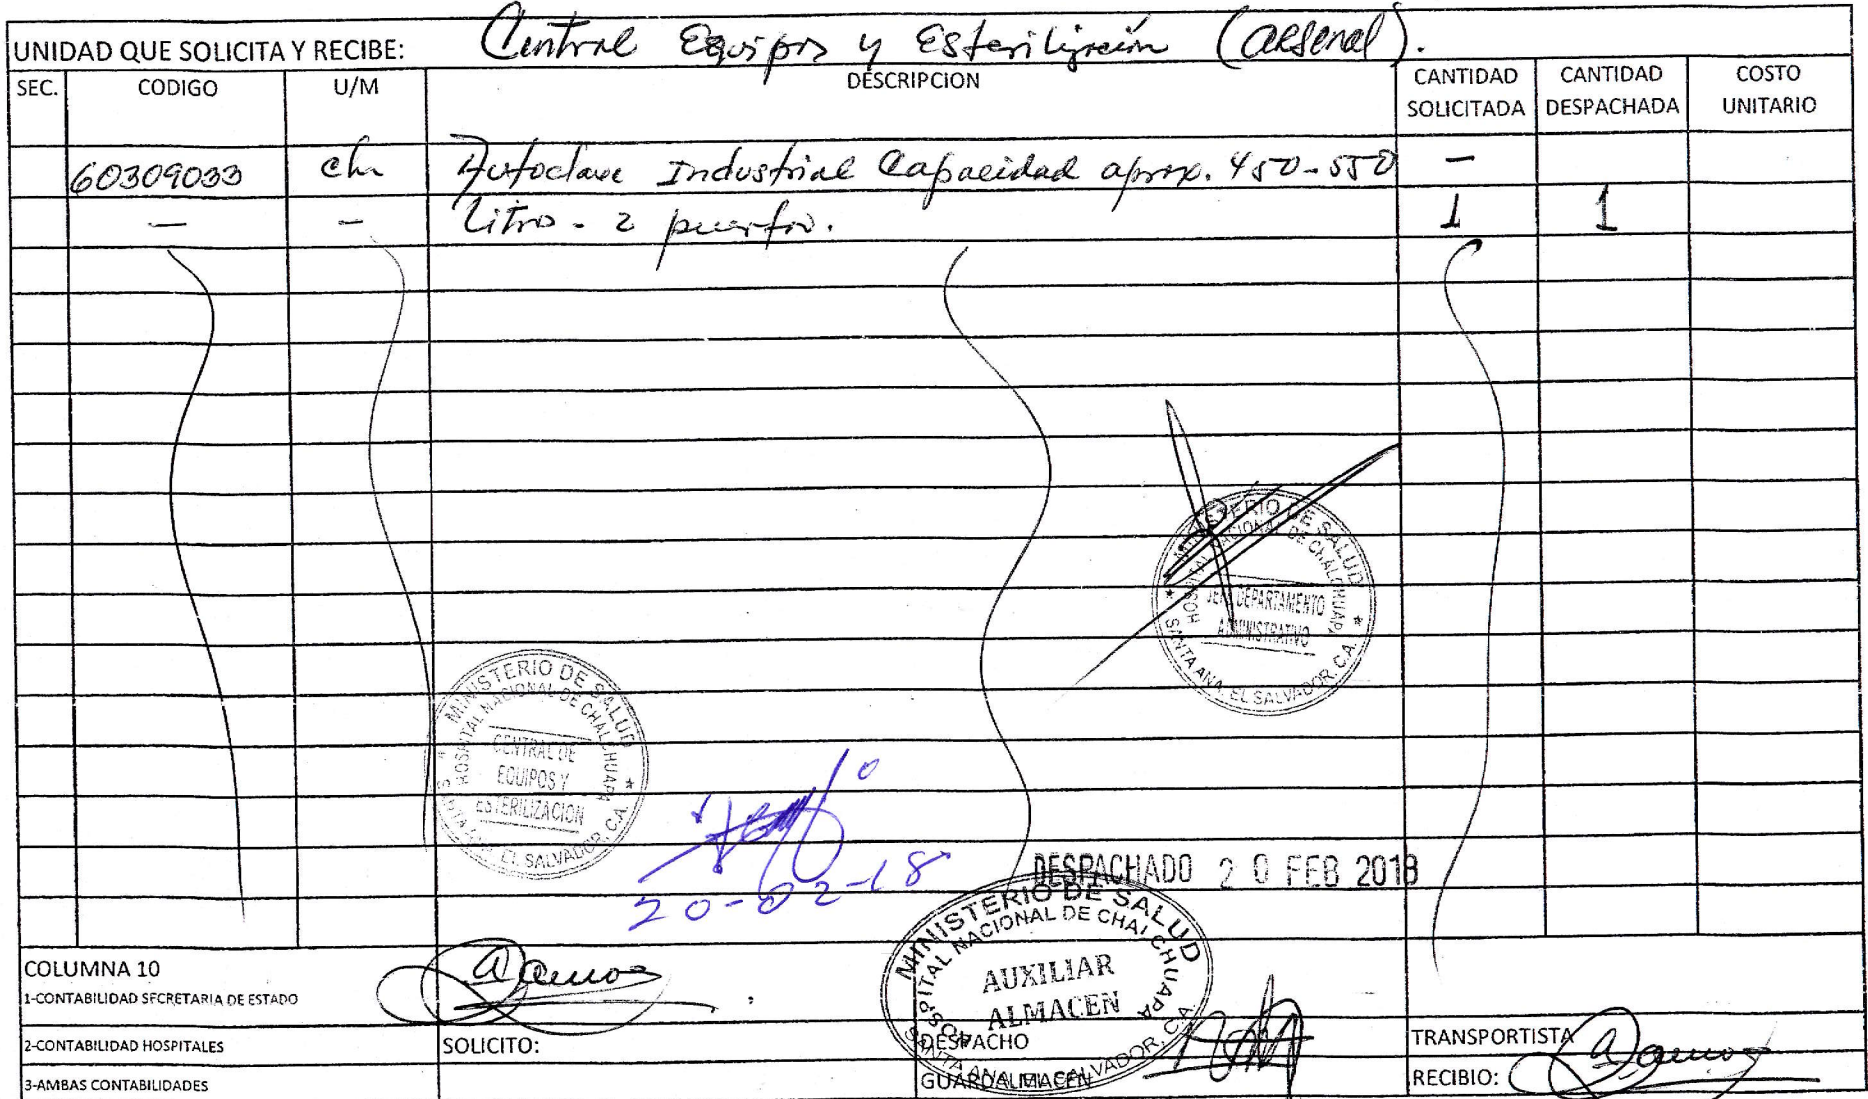 UNIDAD QUE SOLICITA Y RECIBE: Central Equipos y Esterilización (arsenal).
SEC. CODIGO U/M DESCRIPCION CANTIDAD SOLICITADA CANTIDAD DESPACHADA COSTO UNITARIO
60309033 c/u Autoclave Industrial Capacidad aprox. 450-550 —
— — Litro - 2 puertas. 1 1
MINISTERIO DE SALUD
HOSPITAL NACIONAL DE CHALCHUAPA
JEFE DEPARTAMENTO
ADMINISTRATIVO
SANTA ANA, EL SALVADOR, C.A.
MINISTERIO DE SALUD
HOSPITAL NACIONAL DE CHALCHUAPA
CENTRAL DE
EQUIPOS Y
ESTERILIZACION
SANTA ANA, EL SALVADOR, C.A.
20-02-18
DESPACHADO 20 FEB 2018
MINISTERIO DE SALUD
HOSPITAL NACIONAL DE CHALCHUAPA
AUXILIAR
ALMACEN
SANTA ANA, EL SALVADOR, C.A.
COLUMNA 10
1-CONTABILIDAD SECRETARIA DE ESTADO
2-CONTABILIDAD HOSPITALES SOLICITO: DESPACHO TRANSPORTISTA
3-AMBAS CONTABILIDADES GUARDALMACEN RECIBIO: